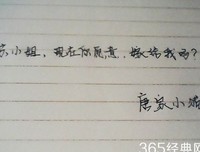 小姐，现在你愿意，嫁给我吗？
唐家小
365经典网